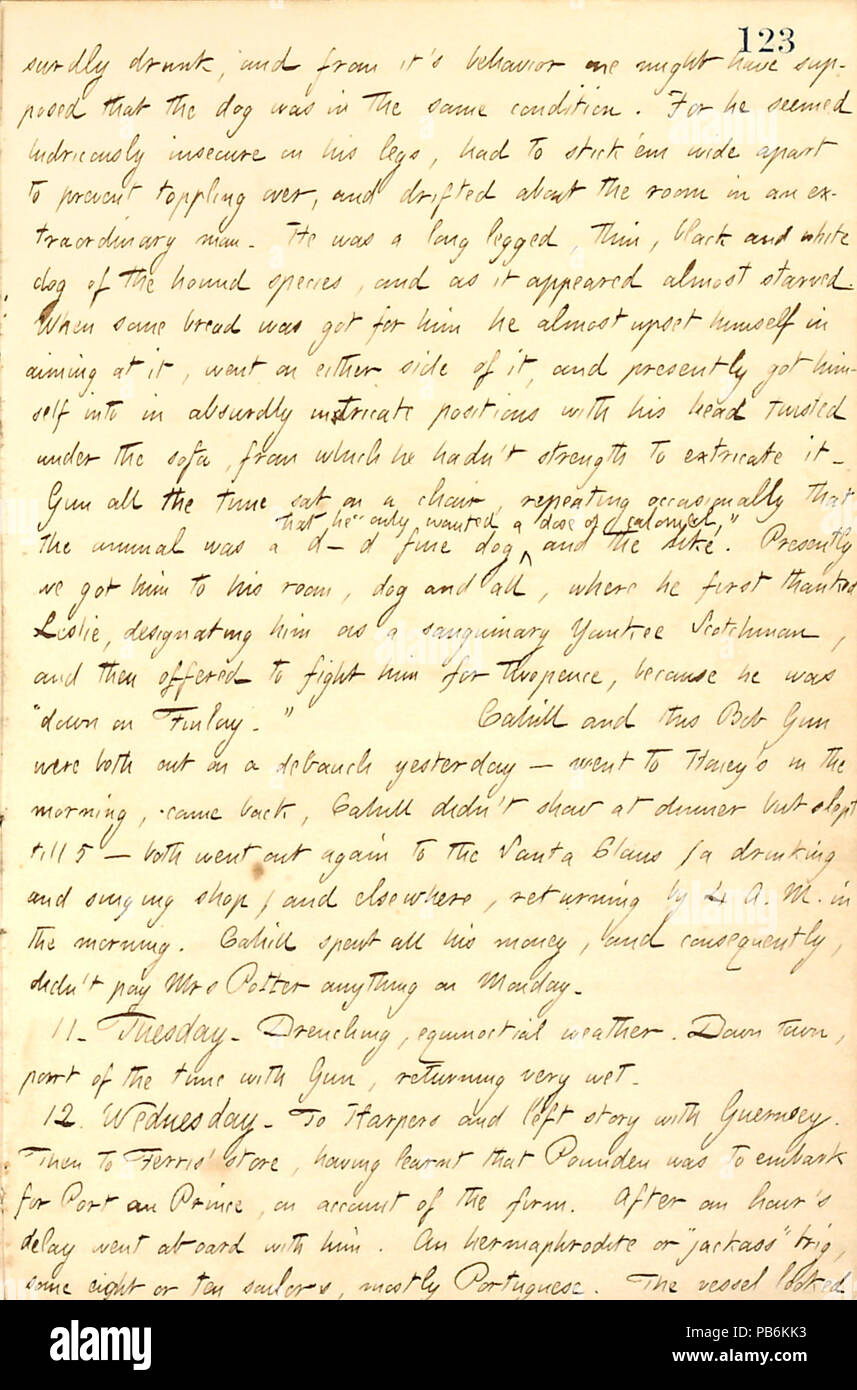 123
surdly drunk, and from it's behavior one might have sup-
posed that the dog was in the same condition. For he seemed
ludricously insecure on his legs, had to stick 'em wide apart
to prevent toppling over, and drifted about the room in an ex-
traordinary man- He was a long legged, thin, black and white
dog of the hound species, and as it appeared almost starved.
When some bread was got for him he almost upset himself in
aiming at it, went on either side of it, and presently got him-
self into in absurdly intricate positions with his head twisted
under the sofa, from which he hadn't strength to extricate it -
Gun all the time sat on a chair, repeating occasionally that
that he "only wanted a dose of calomel,"
the animal was a d-d fine dog ^ and the like. Presently
we got him to his room, dog and all, where he first thanked
Leslie, designating him as a sanguinary Yankee Scotchman,
and then offered to fight him for twopence, because he was
"down on Finlay." Cahill and this Bob Gun
were both out on a debauch yesterday — went to Honey's in the
morning, came back, Cahill didn't show at dinner but slept
till 5 — both went out again to the Santa Claus (a drinking
and singing shop) and elsewhere, returning by 4 A. M. in
the morning. Cahill spent all his money, and consequently,
didn't pay Mrs Potter anything on Monday.
11. Tuesday. Drenching, equinoctial weather. Down town,
part of the time with Gun, returning very wet.
12. Wednesday. To Harpers and left story with Guernsey.
Then to Ferris' store, having learnt that Pounden was to embark
for Port au Prince, on account of the firm. After an hour's
delay went aboard with him. An hermaphrodite or "jackass" brig,
some eight or ten sailors, mostly Portuguese. The vessel looked
alamy
PB6KK3
www.alamy.com